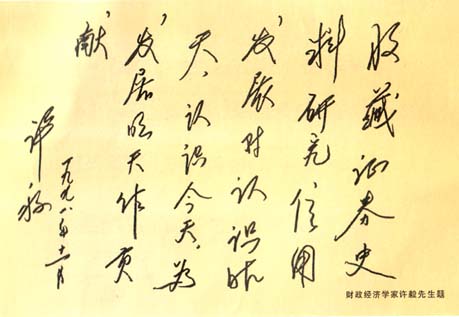 收藏证券史
料研究、信用
发展对认识昨
天，认识今天，为
发展明天作贡
献
许毅
一九九八年十一月
财政经济学家许毅先生题